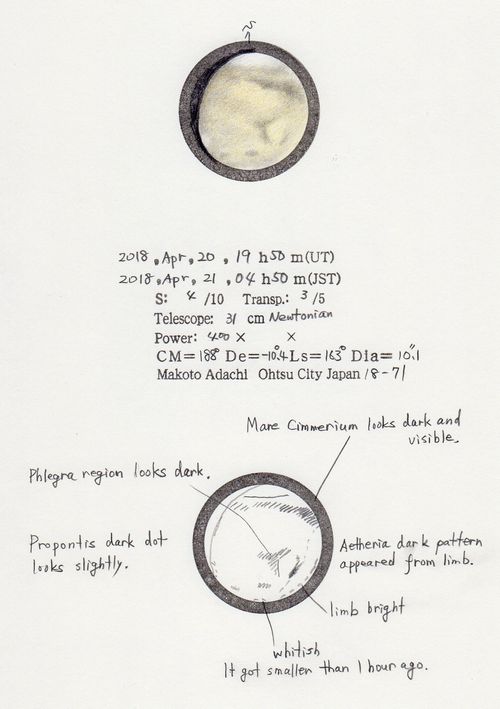 S
2018, Apr, 20, 19 h 50 m(UT)
2018, Apr, 21, 04 h 50 m(JST)
S: 4 /10 Transp.: 3 /5
Telescope: 31 cm Newtonian
Power: 400 × ×
CM= 188° De= -10.°4 Ls= 163° Dia= 10".1
Makoto Adachi Ohtsu City Japan 18-71
Mare Cimmerium looks dark and
visible.
Phlegra region looks dark.
Propontis dark dot
looks slightly.
Aetheria dark pattern
appeared from limb.
limb bright
whitish
It got smaller than 1 hour ago.